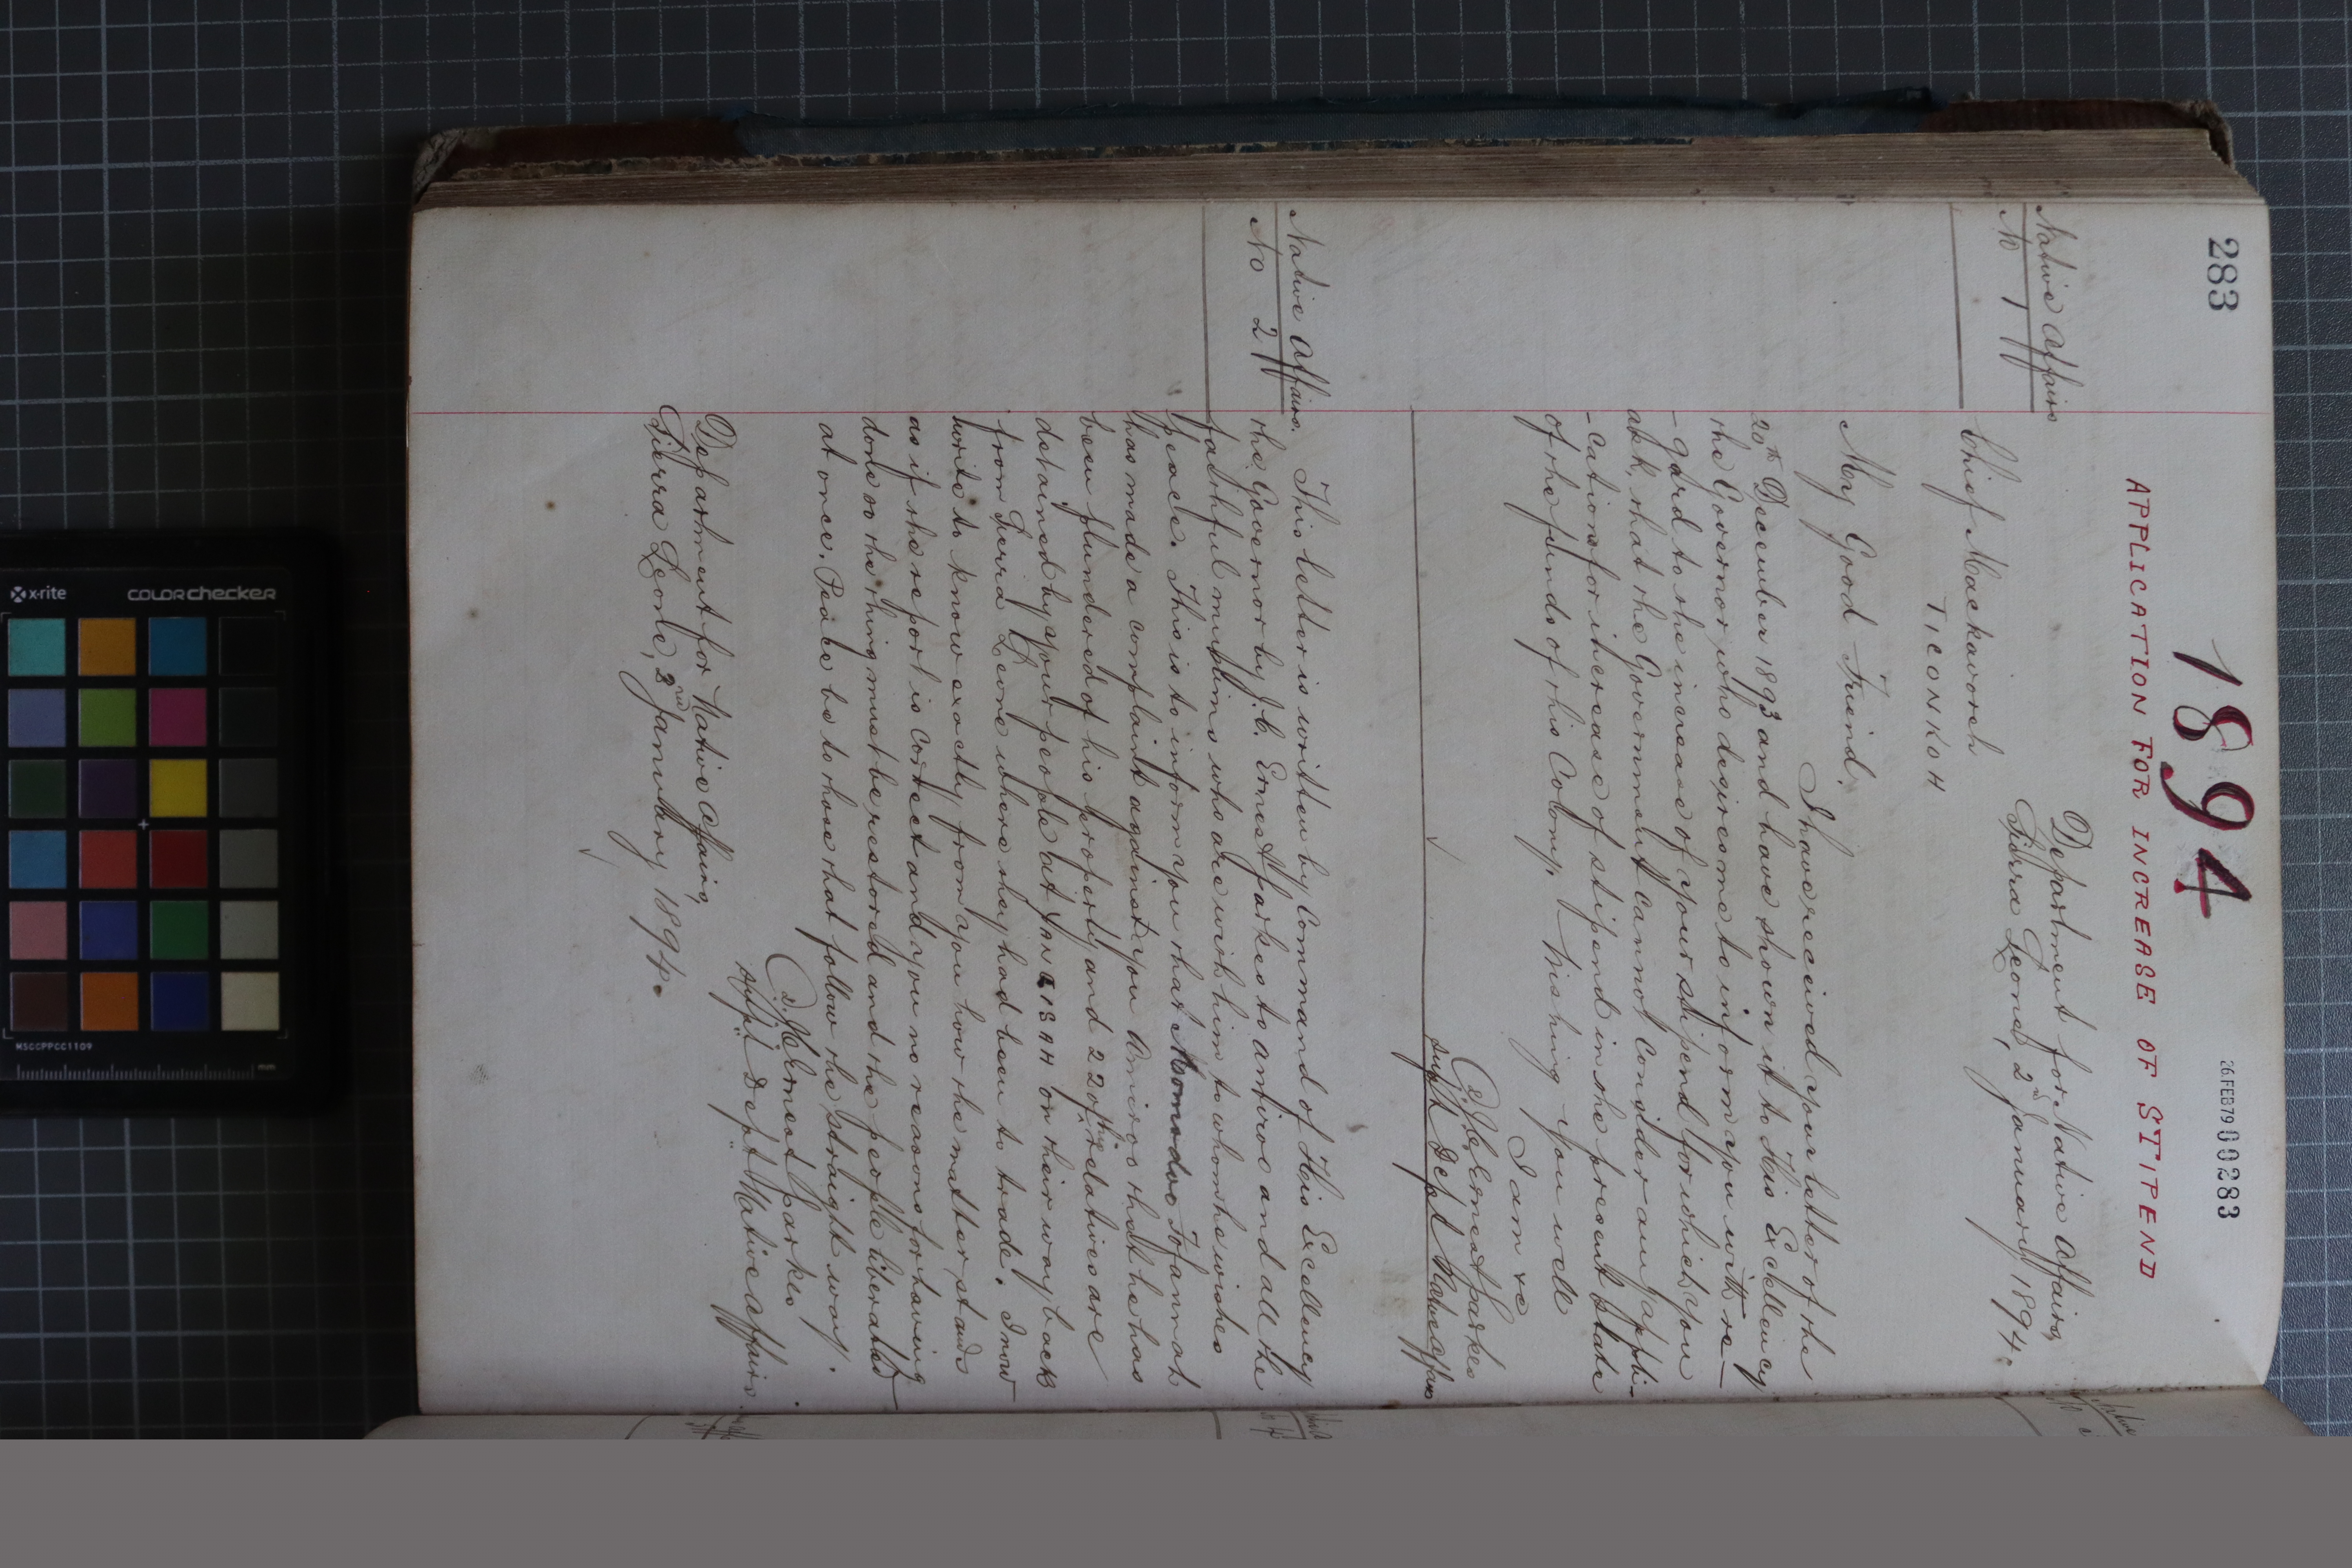 283
26.FEB79 00283
1894
APPLICATION FOR INCREASE OF STIPEND
Native Affairs
No 1
Department for Native Affairs,
Sierra Leone, 2nd January 1894.
Chief Mackavoreh
TICONKOH
My Good Friend,
I have received your letter of the
20th December 1893 and have shown it to His Excellency
the Governor who desires me to inform you with re-
-gard to the increase of your stipend for which you
ask, that the Government cannot consider any appli-
-cations for increase of stipend in the present state
of the funds of this Colony. Wishing you well
I am &c
J.C. Ernest Parkes
Supt Dept Native Affairs
Native Affairs.
No 2
This letter is written by Command of His Excellency
the Governor by J.C. Ernest Parkes to and all the
faithful muslims who are with him to whom he wishes
peace. This is to inform you that Momodoo Tofannah
has made a complaint against you that he has
been plundered of his property and 22 of his relatives are
detained by your people at on their way back
from Sierra Leone where they had been to trade. I now
write to know exactly from you how the matter stands
as if the report is correct and you no reasons for having
done so the thing must be restored and the people liberated
at once. Peace be to those that follow the straight way.
J.C. Ernest Parkes
Supt Dept Native Affairs.
Department for Native Affairs,
Sierra Leone, January 1894.
x-rite
colorchecker
MSCCPPCC1109
mm